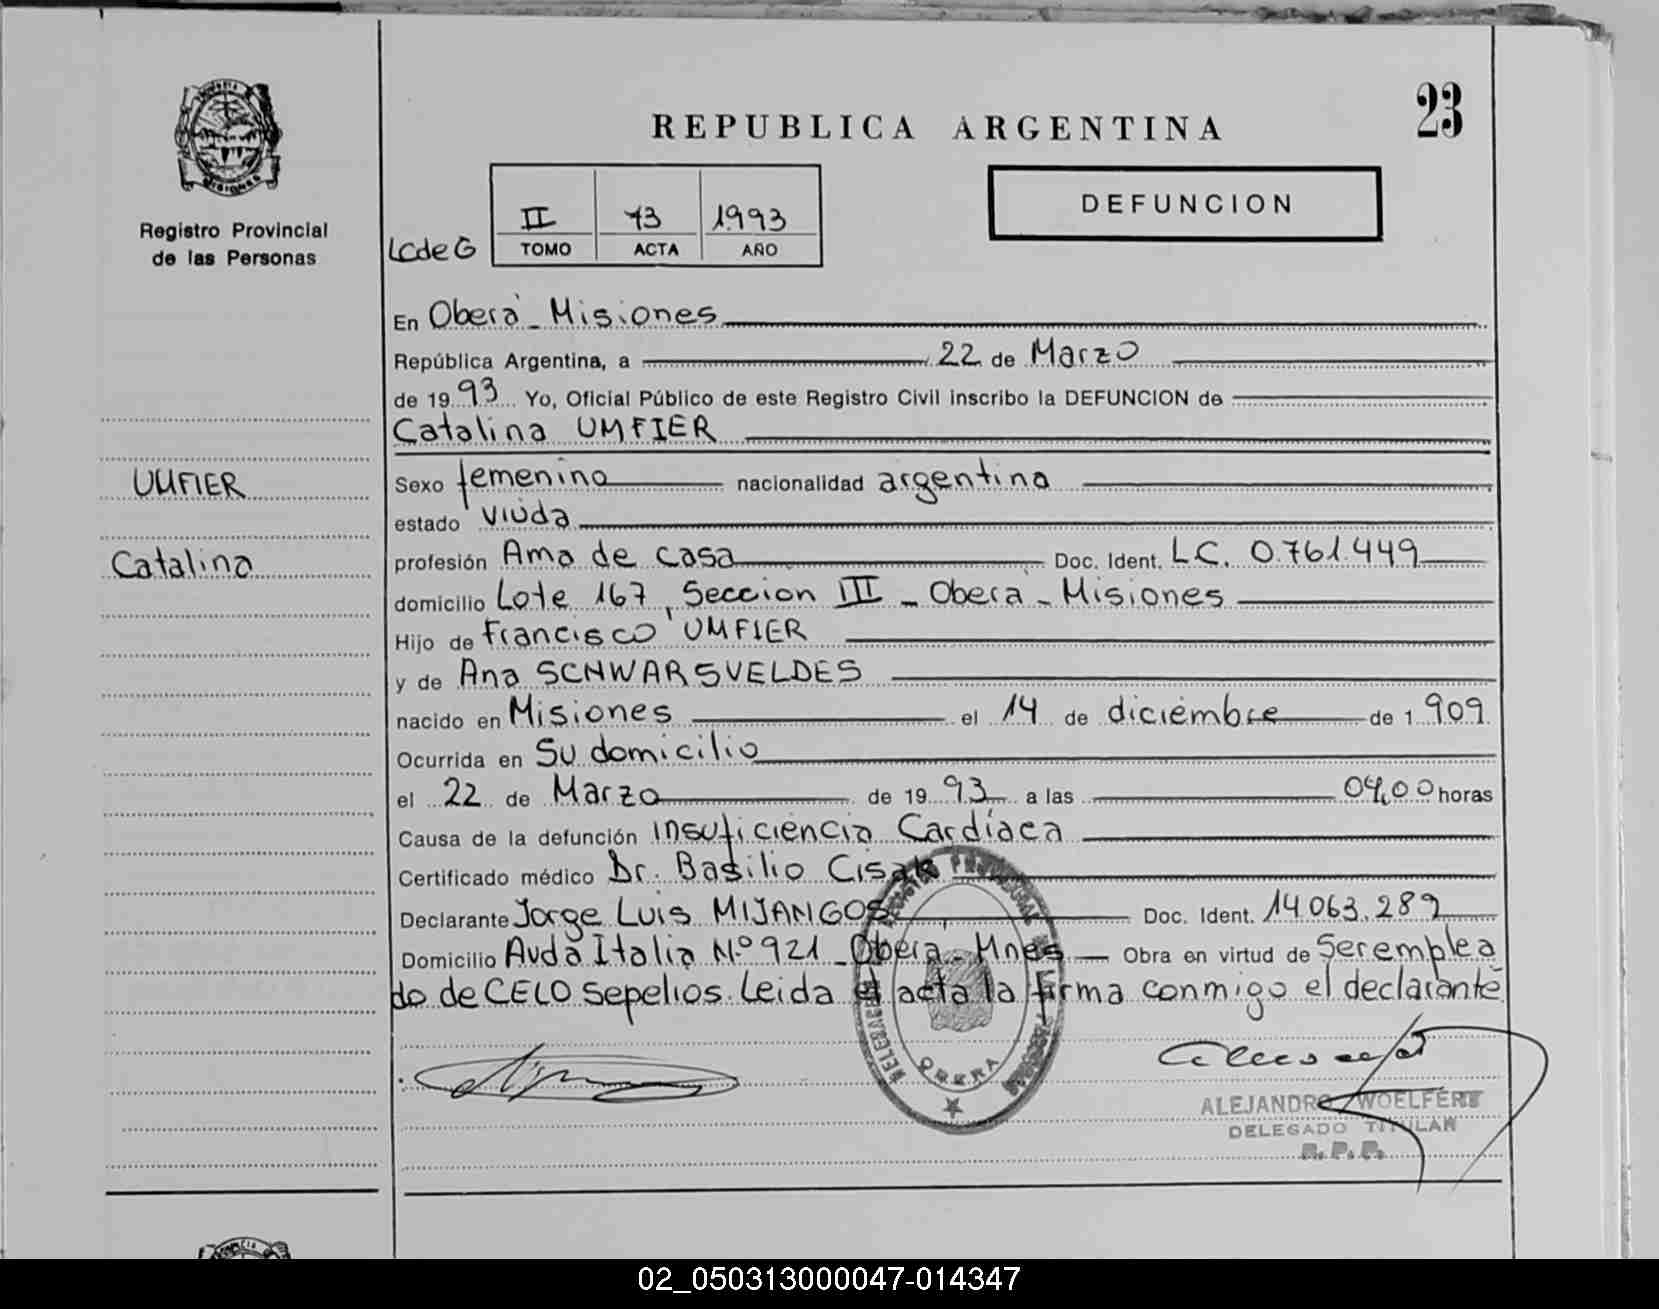 23
REPUBLICA ARGENTINA
DEFUNCION
Registro Provincial
de las Personas
LCdeG
II 73 1993
TOMO ACTA AÑO
En Oberá - Misiones
República Argentina, a 22 de Marzo
de 1993 Yo, Oficial Público de este Registro Civil inscribo la DEFUNCION de
Catalina UMFIER
UMFIER
Catalina
Sexo femenino nacionalidad argentina
estado viuda
profesión Ama de casa Doc. Ident. LC. 0.761.449
domicilio Lote 167, Seccion III - Oberá - Misiones
Hijo de Francisco UMFIER
y de Ana SCHWARSVELDES
nacido en Misiones el 14 de diciembre de 1909
Ocurrida en Su domicilio
el 22 de Marzo de 1993 a las 04,00 horas
Causa de la defunción insuficiencia Cardíaca
Certificado médico Dr. Basilio Cisak
Declarante Jorge Luis MIJANGOS Doc. Ident. 14.063.289
Domicilio Avda Italia Nº 921 - Oberá - Mnes - Obra en virtud de Ser emplea
do de CELO sepelios. Leida el acta la firma conmigo el declarante
OBERA
ALEJANDRO WOELFERT
DELEGADO TITULAR
R. P. P.
02_050313000047-014347